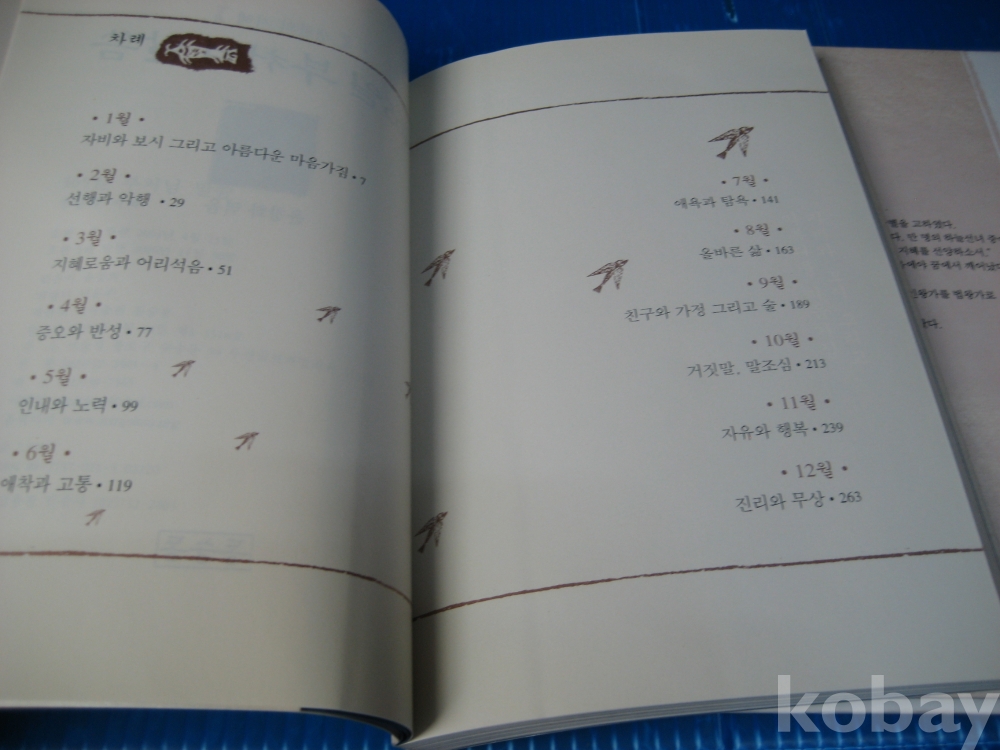 차례
• 1월 •
자비와 보시 그리고 아름다운 마음가짐 • 7
• 2월 •
선행과 악행 • 29
• 3월 •
지혜로움과 어리석음 • 51
• 4월 •
증오와 반성 • 77
• 5월 •
인내와 노력 • 99
• 6월 •
애착과 고통 • 119
• 7월 •
애욕과 탐욕 • 141
• 8월 •
올바른 삶 • 163
• 9월 •
친구와 가정 그리고 술 • 189
• 10월 •
거짓말, 말조심 • 213
• 11월 •
자유와 행복 • 239
• 12월 •
진리와 무상 • 263
고하였다.
다. 만 명의 하늘선녀
지혜를
꿈에서 깨어났다
kobay